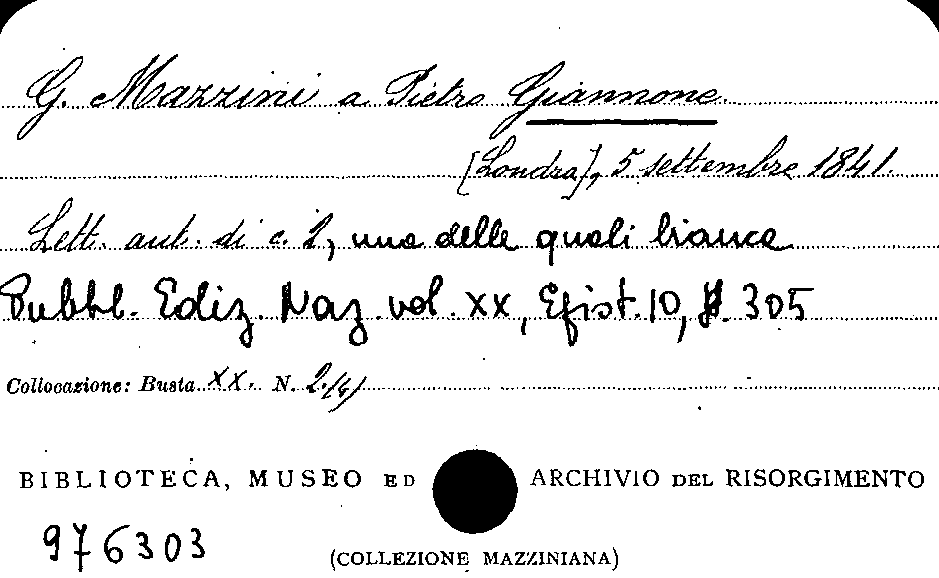 G. Mazzini a Pietro Giannone
[Londra], 5 settembre 1841.
Lett. aut. di c. 2, una delle quali bianca
Pubbl. Ediz. Naz. vol. XX, Epist. 10, p. 305
Collocazione: Busta XX. N. 2/(4)
BIBLIOTECA, MUSEO ED ARCHIVIO DEL RISORGIMENTO
976303
(COLLEZIONE MAZZINIANA)